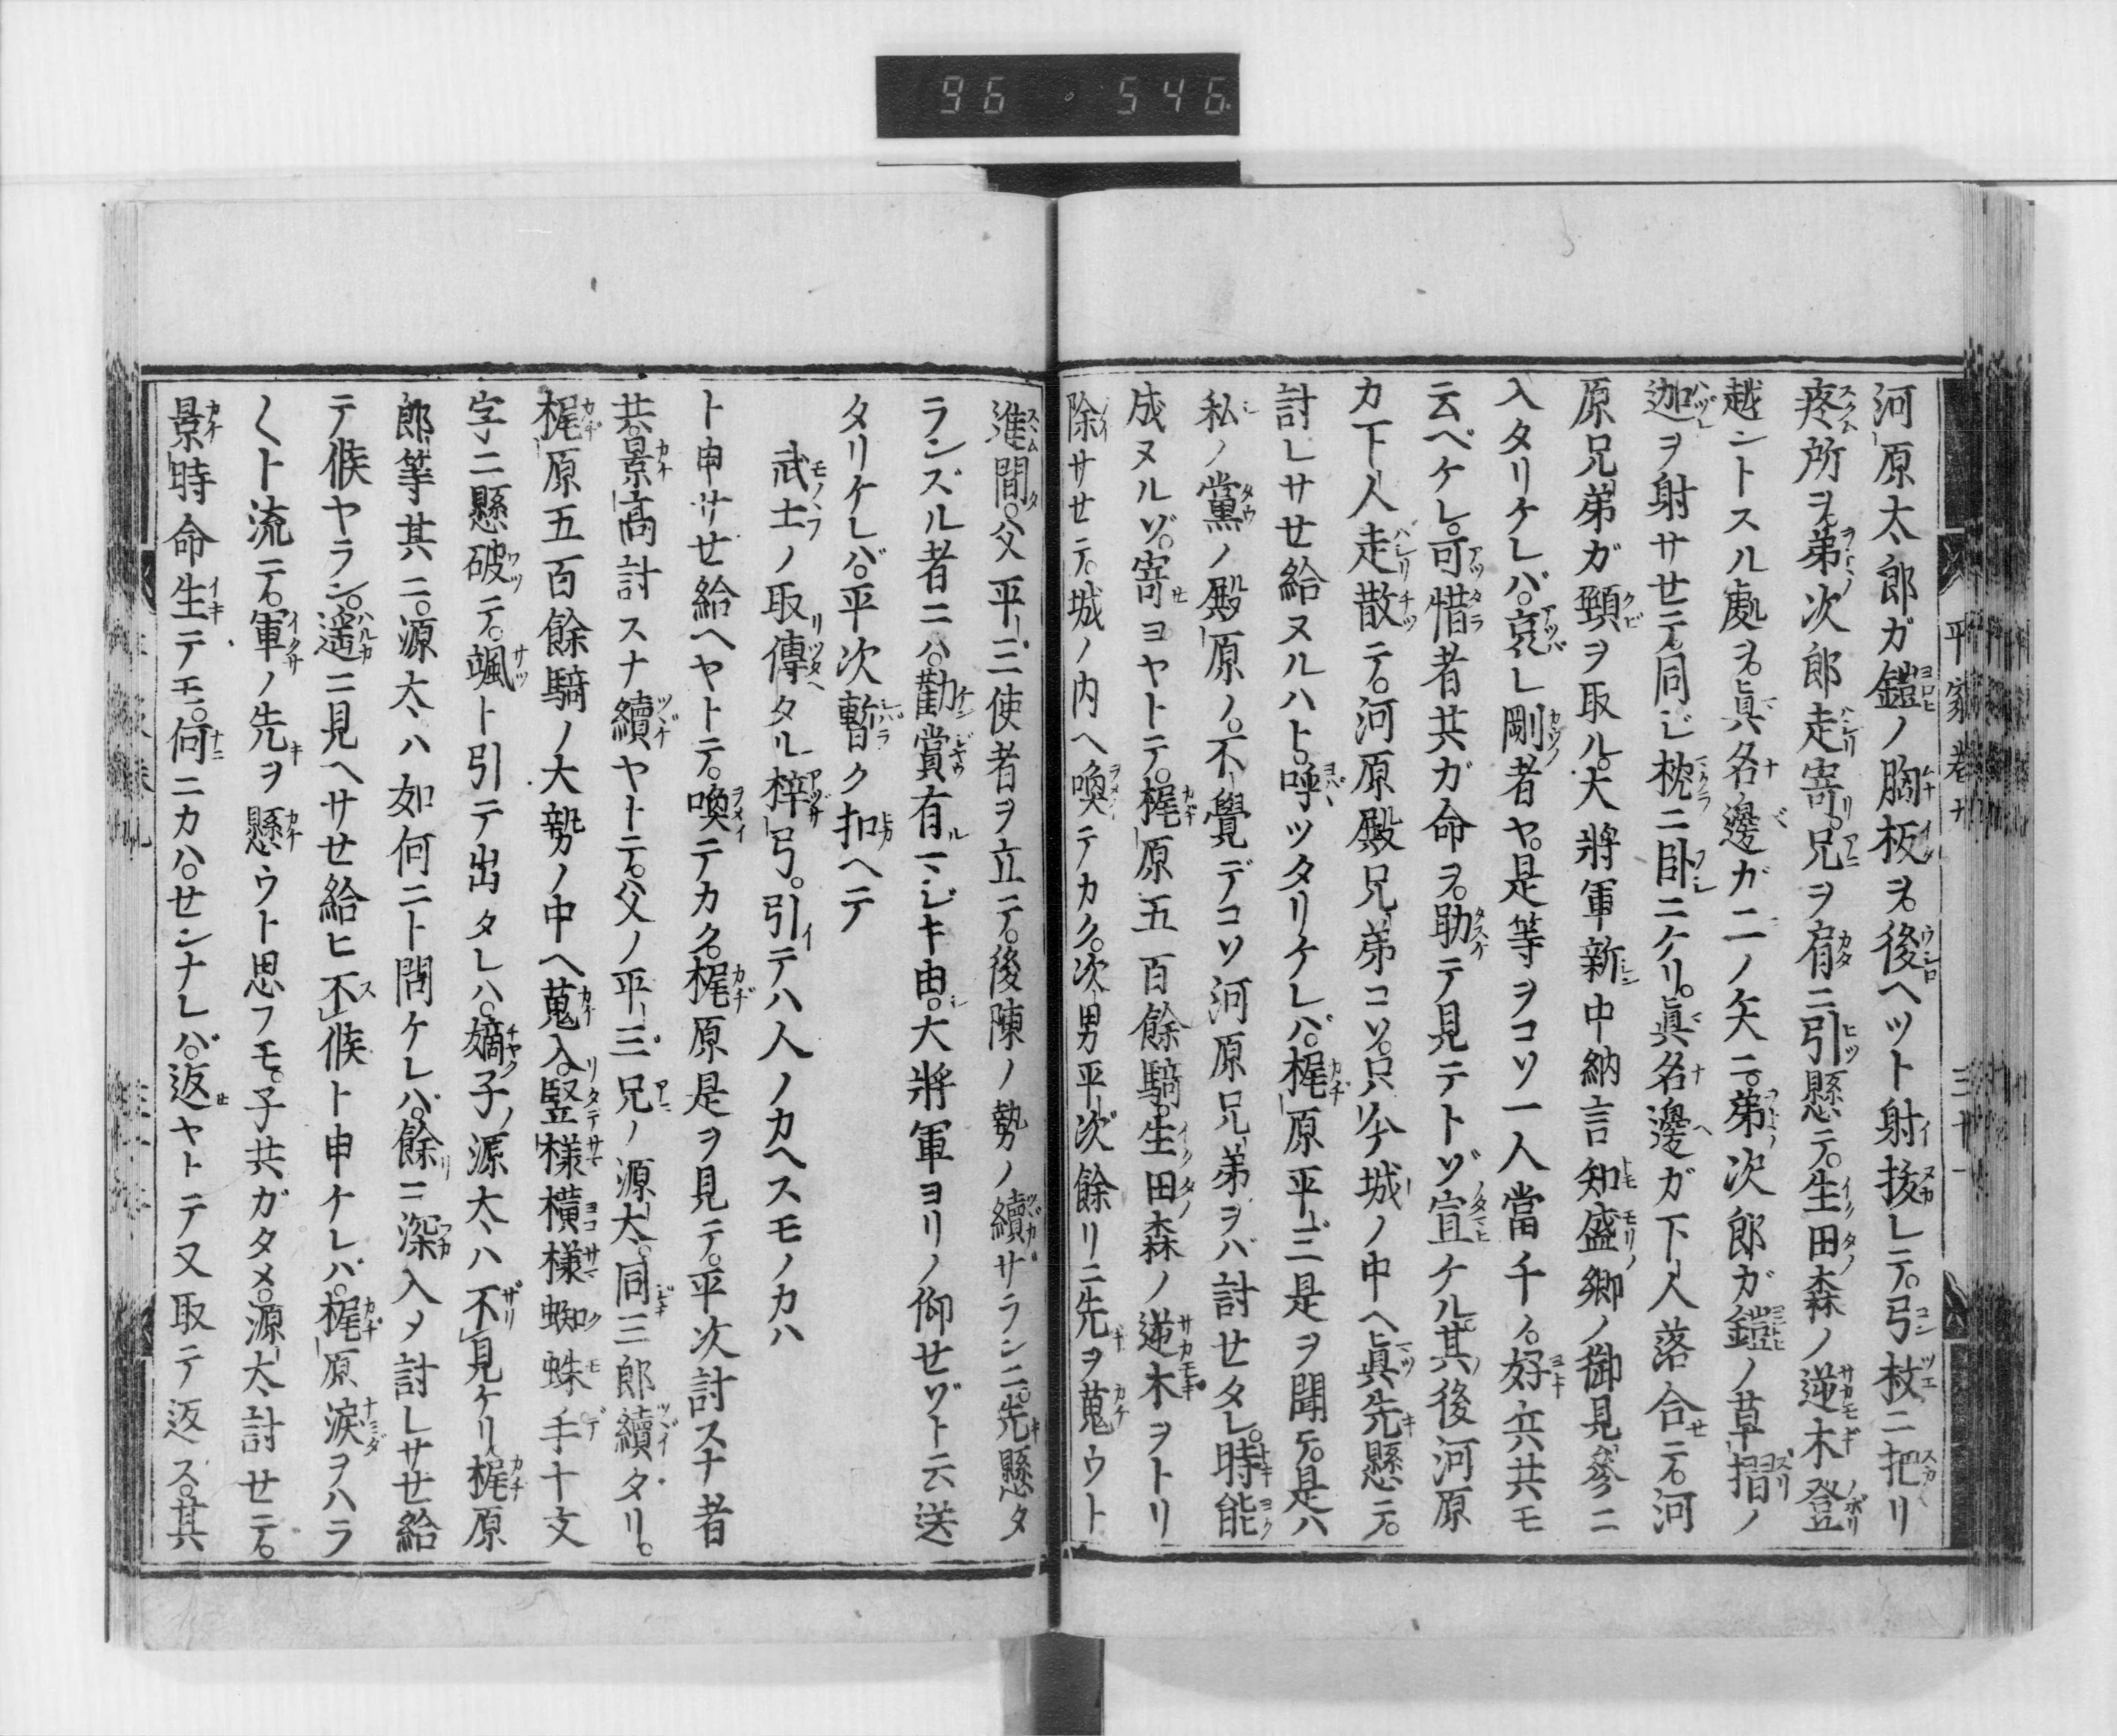 96 546
平家卷九
三十一
河原太郎ガ鎧ノ胸板ヲ。後ヘツト射拔レテ。弓杖ニ把リ
疼所ヲ。弟次郎走寄リ。兄ヲ肩ニ引懸テ。生田森ノ逆木登
越ントスル處ヲ。眞名邊ガ二ノ矢ニ。弟次郎ガ鎧ノ草摺ノ
迦ヲ射サセテ。同ジ枕ニ卧ニケリ。眞名邊ガ下人落合テ。河
原兄弟ガ頸ヲ取ル。大將軍新中納言知盛卿ノ御見參ニ
入タリケレバ。哀レ剛者ヤ。是等ヲコソ一人當千ノ。好兵共モ
云ベケレ。可惜者共ガ命ヲ。助テ見テトゾ宣ケル。其後河原
カ下人走散テ。河原殿兄弟コソ。只今城ノ中ヘ眞先懸テ。
討レサセ給ヌルハト。呼ツタリケレバ。梶原平三是ヲ聞テ。是ハ
私ノ黨ノ殿原ノ。不覺デコソ河原兄弟ヲバ討セタレ。時能
成ヌルゾ。寄ヨヤトテ。梶原五百餘騎。生田森ノ逆木ヲトリ
除サセテ。城ノ内ヘ喚テカク。次男平次餘リニ先ヲ蒐ウト
進間。父平三使者ヲ立テ。後陳ノ勢ノ續サランニ。先懸タ
ランズル者ニハ。勸賞有マジキ由。大將軍ヨリノ仰セゾト云送
タリケレバ。平次暫ク扣ヘテ
武士ノ取傳タル梓弓。引テハ人ノカヘスモノカハ
ト申サセ給ヘヤトテ。喚テカク。梶原是ヲ見テ。平次討スナ者
共。景高討スナ續ヤトテ。父ノ平三。兄ノ源太。同三郎續タリ。
梶原五百餘騎ノ大勢ノ中ヘ蒐入。竪樣橫樣蜘蛛手十文
字ニ懸破テ。颯ト引テ出タレハ。嫡子ノ源太ハ不見ケリ。梶原
郎等共ニ。源太ハ如何ニト問ケレバ。餘リニ深入メ討レサセ給
テ候ヤラン。遥ニ見ヘサセ給ヒ不候ト申ケレバ。梶原涙ヲハラ
〱ト流テ。軍ノ先ヲ懸ウト思フモ。子共ガタメ。源太討セテ。
景時命生テモ。何ニカハ。センナレバ。返ヤトテ又取テ返ス。其